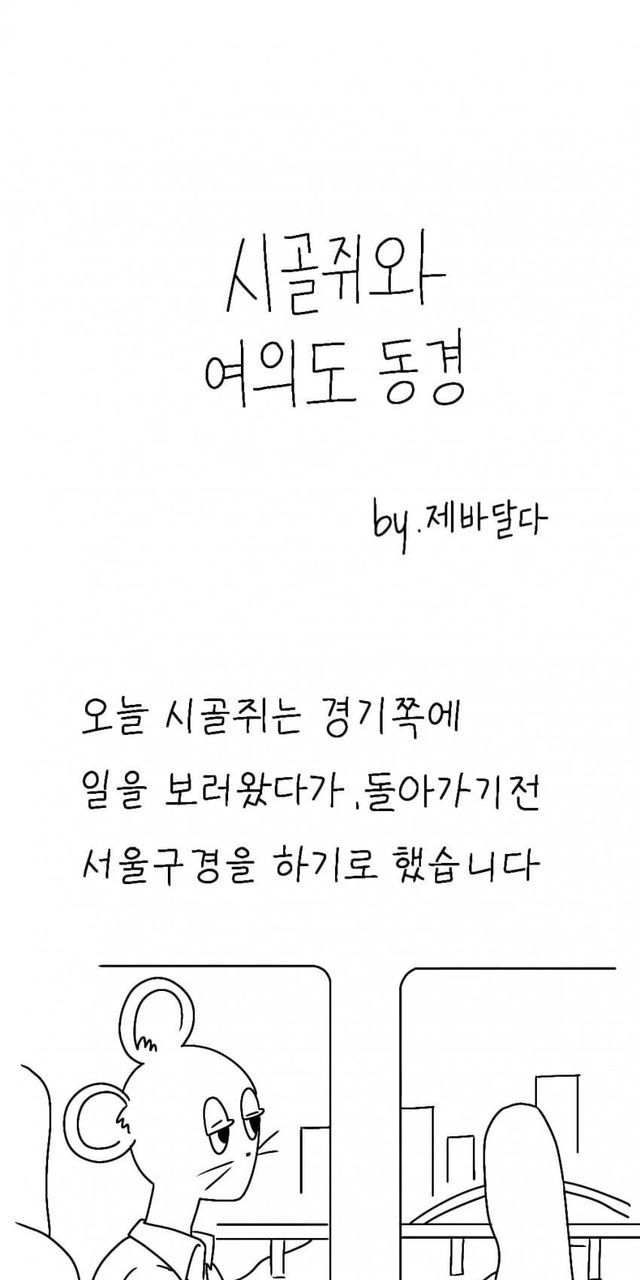 시골쥐와
여의도 동경
by.제바달다
오늘 시골쥐는 경기쪽에
일을 보러왔다가,돌아가기전
서울구경을 하기로 했습니다